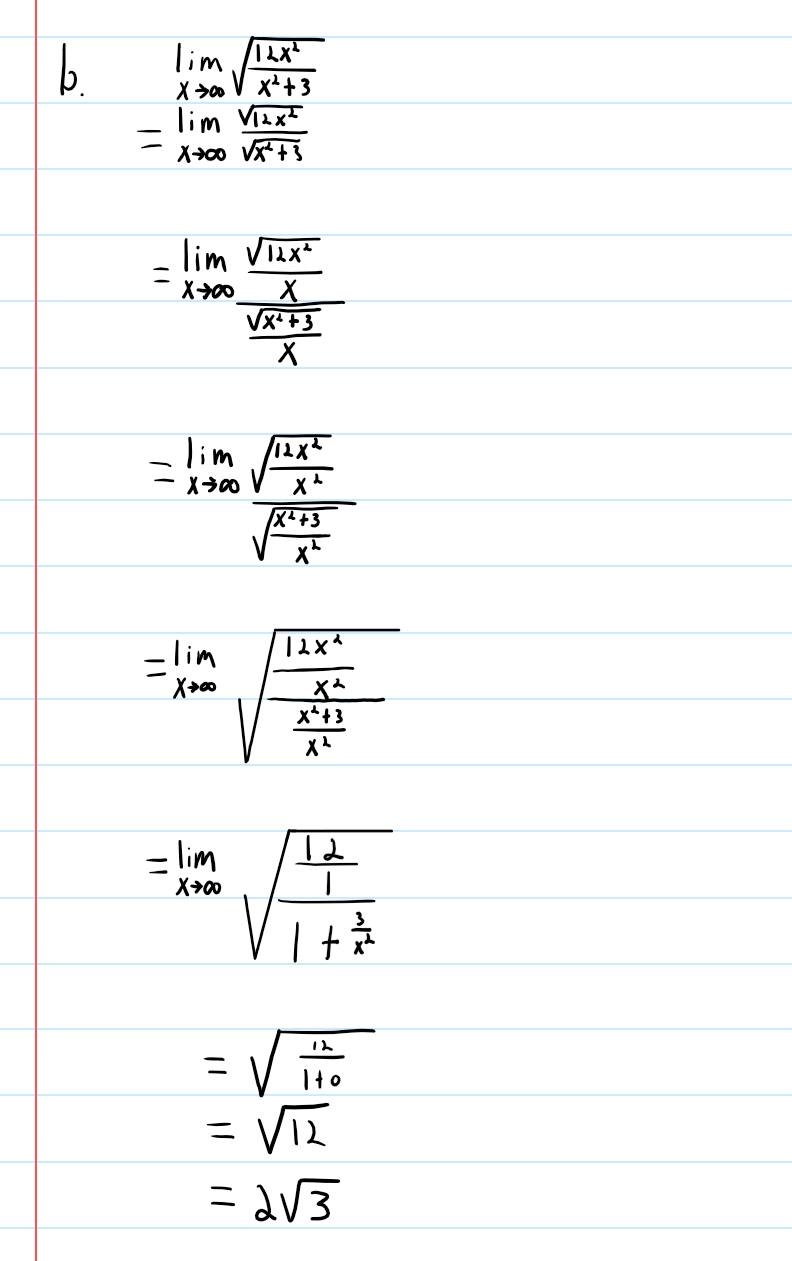 b. lim x→∞ √(12x²/(x²+3))
= lim x→∞ √(12x²)/√(x²+3)
= lim x→∞ (√(12x²)/x)/(√(x²+3)/x)
= lim x→∞ √(12x²/x²)/√((x²+3)/x²)
= lim x→∞ √((12x²/x²)/((x²+3)/x²))
= lim x→∞ √((12/1)/(1+3/x²))
= √(12/(1+0))
= √12
= 2√3